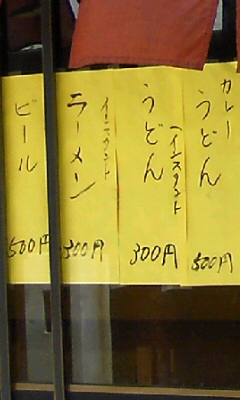 カレーうどん
500円
うどん(インスタント
300円
インスタント
ラーメン
300円
ビール
500円